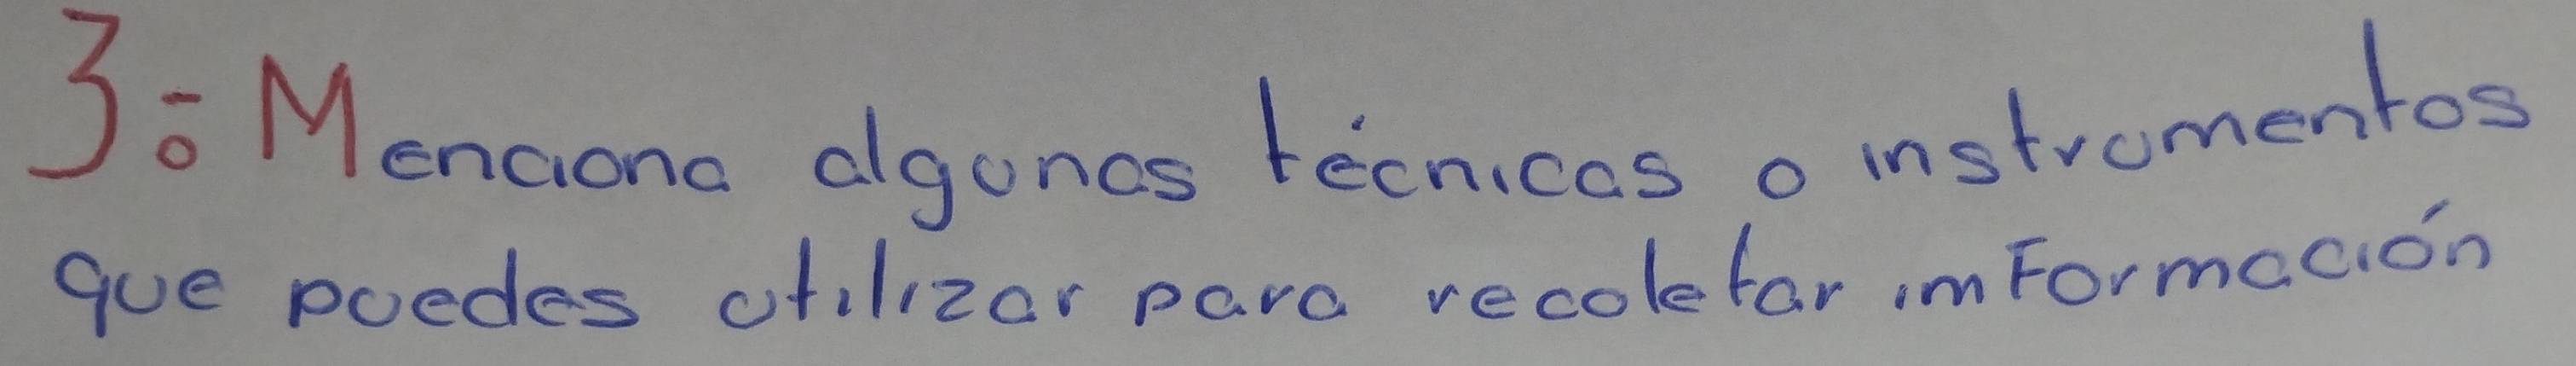 3: Menciona algunas técnicas o instrumentos
que puedes utilizar para recoletar imformación